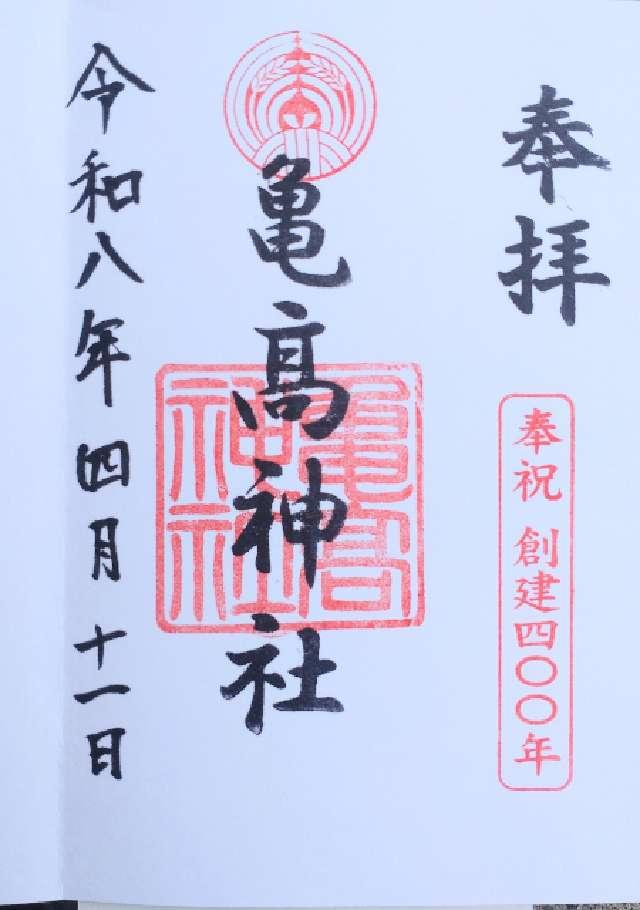 奉拝
奉祝 創建四〇〇年
亀高神社
亀高神社
令和八年四月十一日